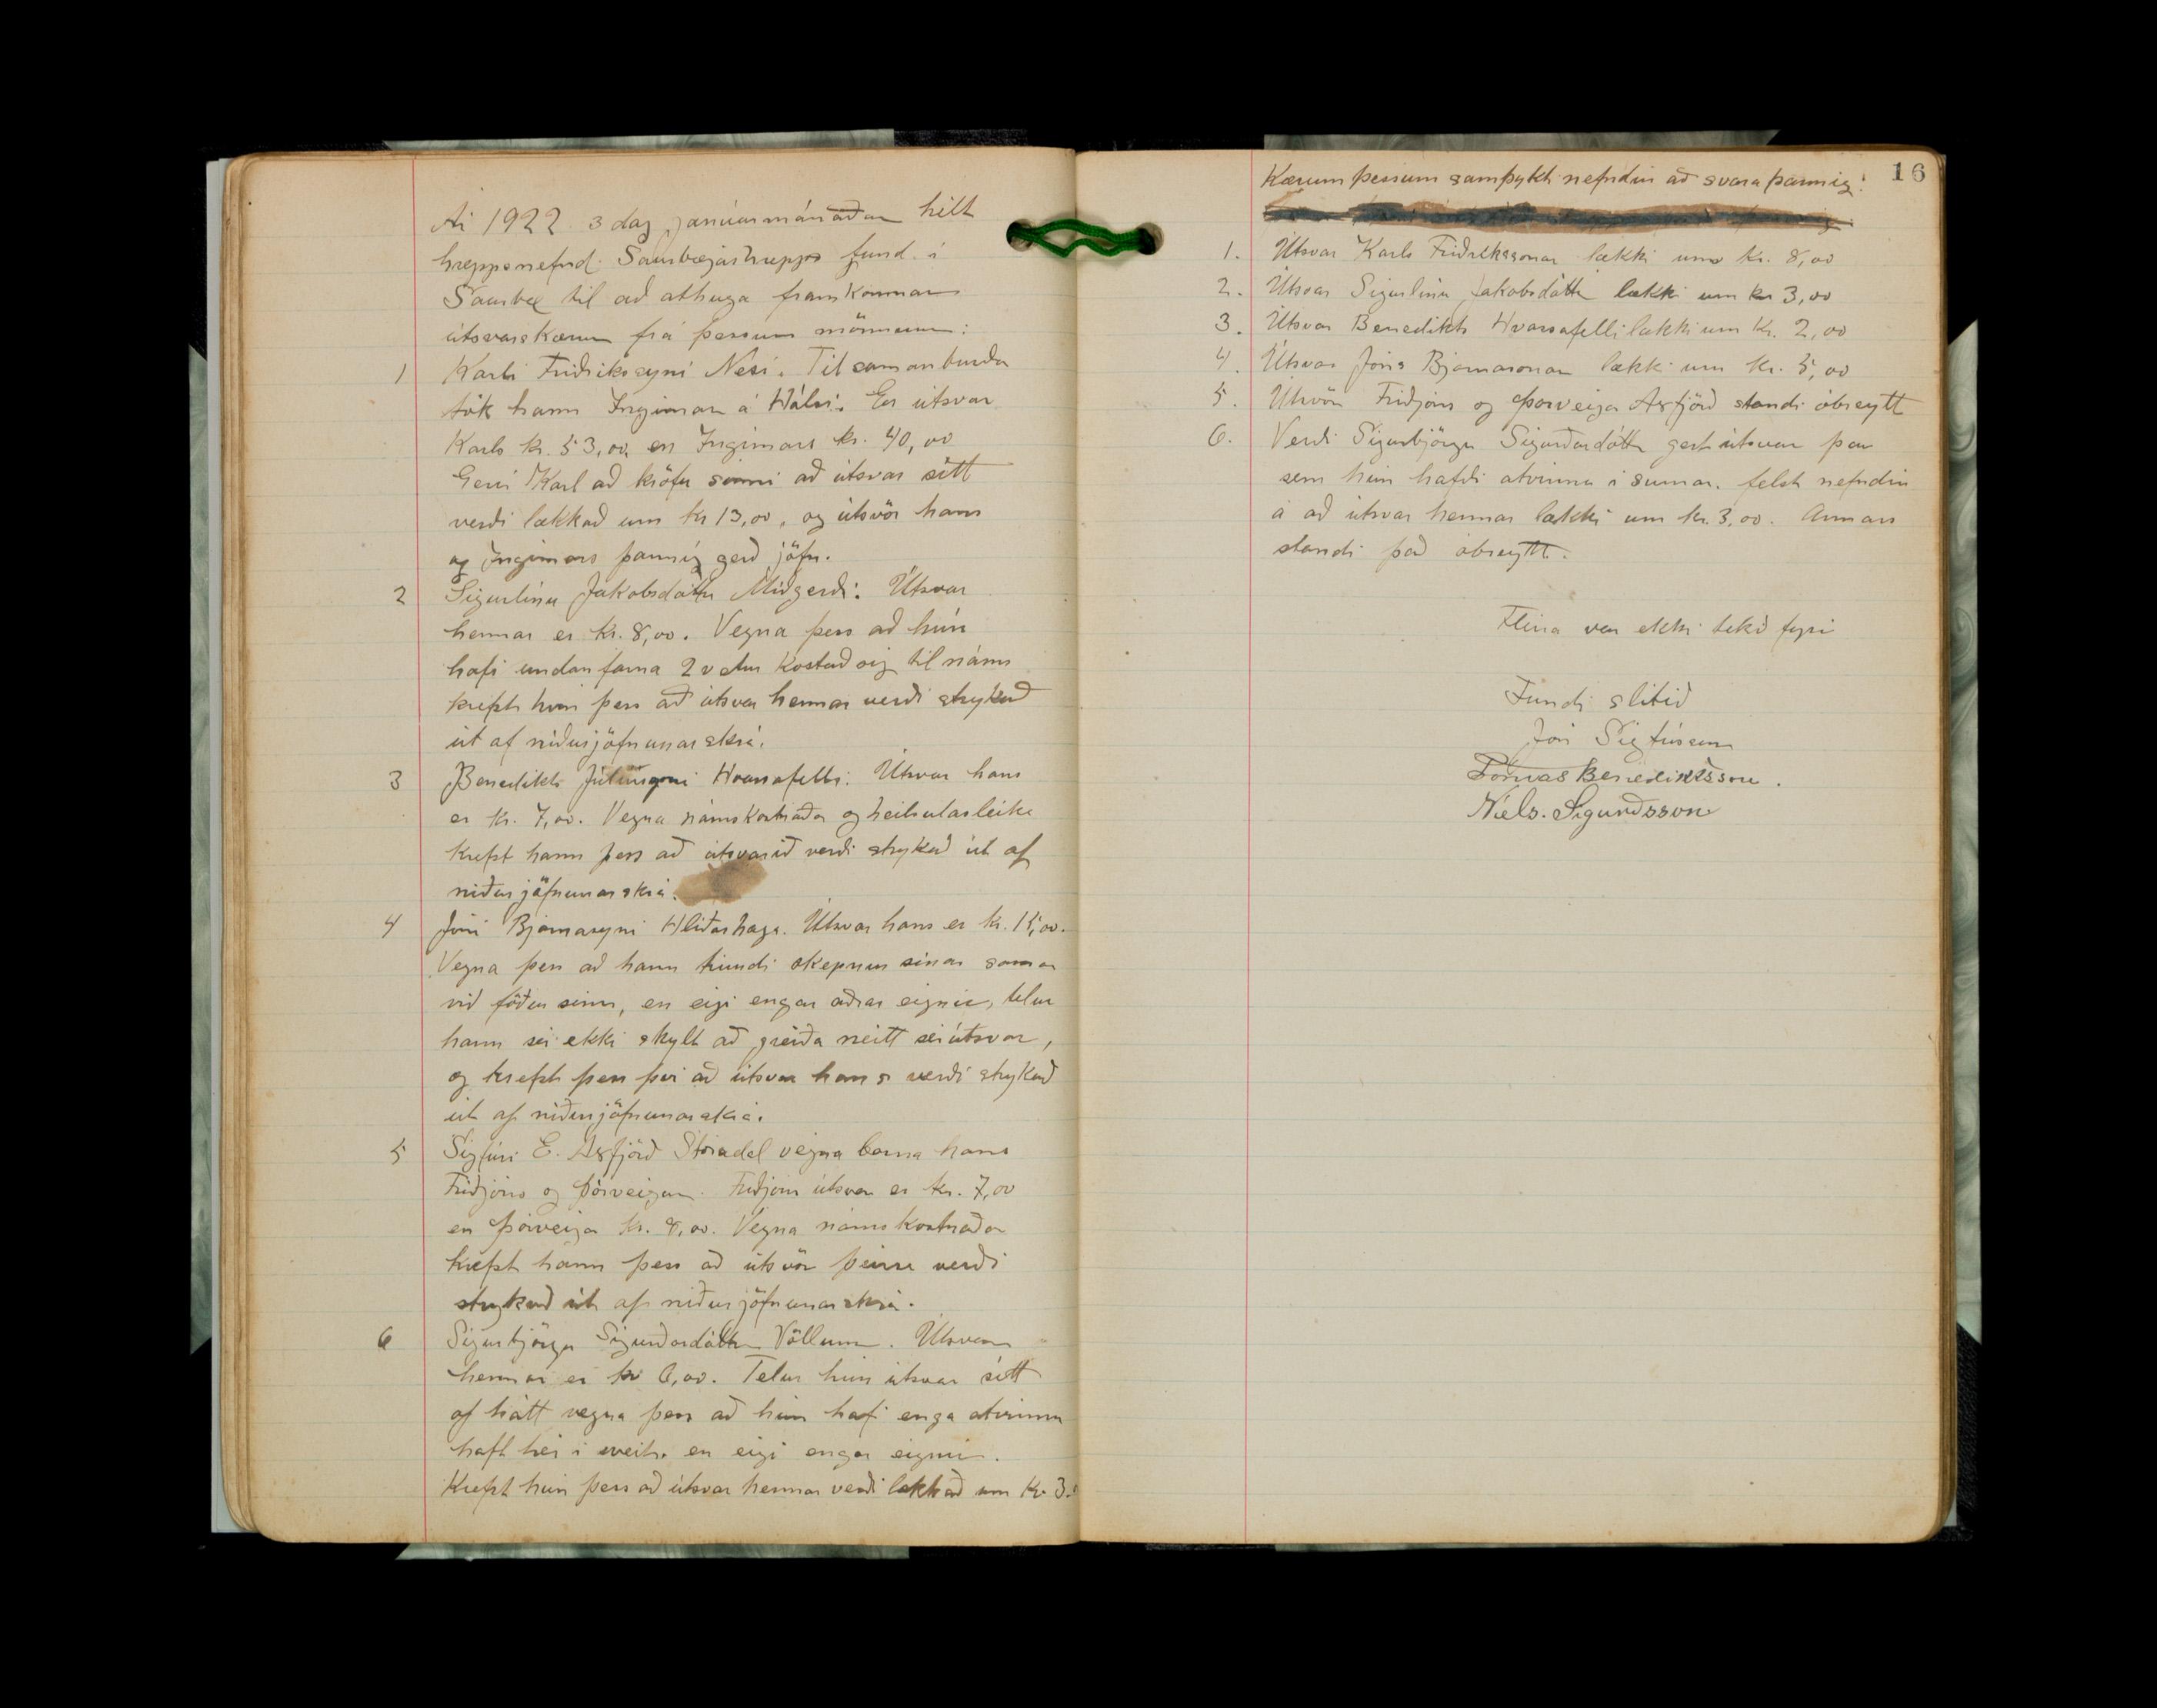 Ár 1922 3 dag janúarmánaðar hélt
hreppsnefnd Saurbæjarhrepps fund í
Saurbæ til að athuga framkomnar
útsvarskærur frá þessum mönnum:
1 Karli Friðrikssyni Nesi. Til samanburðar
tók hann Ingimar á Hálsi. Er útsvar
Karls kr. 53,00 en Ingimars kr. 40,00
Gerir Karl að kröfu sinni að útsvar sitt
verði lækkað um kr 13,00, og útsvör hans
og Ingimars þannig gerð jöfn.
2 Sigurlínu Jakobsdóttur Miðgerði. Útsvar
hennar er kr. 8,00. Vegna þess að hún
hafi undanfarna 2 vetur kostað sig til náms
krefst hún þess að útsvar hennar verði strykað
út af niðurjöfnunarskrá.
3 Benedikt Júlíussyni Hvassafelli. Útsvar hans
er kr. 7,00. Vegna námskostnaðar og heilsulasleika
krefst hann þess að útsvarið verði strykað út af
niðurjöfnunarskrá.
4 Jóni Bjarnasyni Hlíðarhaga. Útsvar hans er kr. 15,00.
Vegna þess að hann tíundi skepnur sínar saman
við föður sinn, en eigi engar aðrar eignir, telur
hann sér ekki skylt að greiða neitt sérútsvar,
og krefst þess því að útsvar hans verði strykað
út af niðurjöfnunarskrá.
5 Sigfúsi E. Axfjörð Stóradal vegna barna hans
Friðjóns og Þórveigar. Friðjóns útsvar er kr. 7,00
en Þórveigar kr. 8,00. Vegna námskostnaðar
krefst hann þess að útsvör þeirra verði
strykuð út af niðurjöfnunarskrá.
6 Sigurbjörgu Sigurðardóttur Völlum. Útsvar
hennar er kr 6,00. Telur hún útsvar sitt
of hátt vegna þess að hún hafi enga atvinnu
haft hér í sveit. en eigi engar eignir.
Krefst hún þess að útsvar hennar verði lækkað um kr. 3.
16
Kærum þessum samþykkti nefndin að svara þannig:
1. Útsvar Karls Friðrikssonar lækki um kr. 8,00
2. Útsvar Sigurlínu Jakobsdóttur lækki um kr 3,00
3. Útsvar Benedikts Hvassafelli lækki um kr. 2,00
4. Útsvar Jóns Bjarnasonar lækki um kr. 5,00
5. Útsvör Friðjóns og Þorveigar Axfjörð standi óbreytt
6. Verði Sigurbjörgu Sigurðardóttur gert útsvar þar
sem hún hafði atvinnu í sumar. felst nefndin
á að útsvar hennar lækki um kr. 3,00. Annars
standi það óbreytt.
Fleira var ekki tekið fyrir
Fundi slitið
Jón Sigfússon
Tómas Benediktsson.
Níels. Sigurðsson